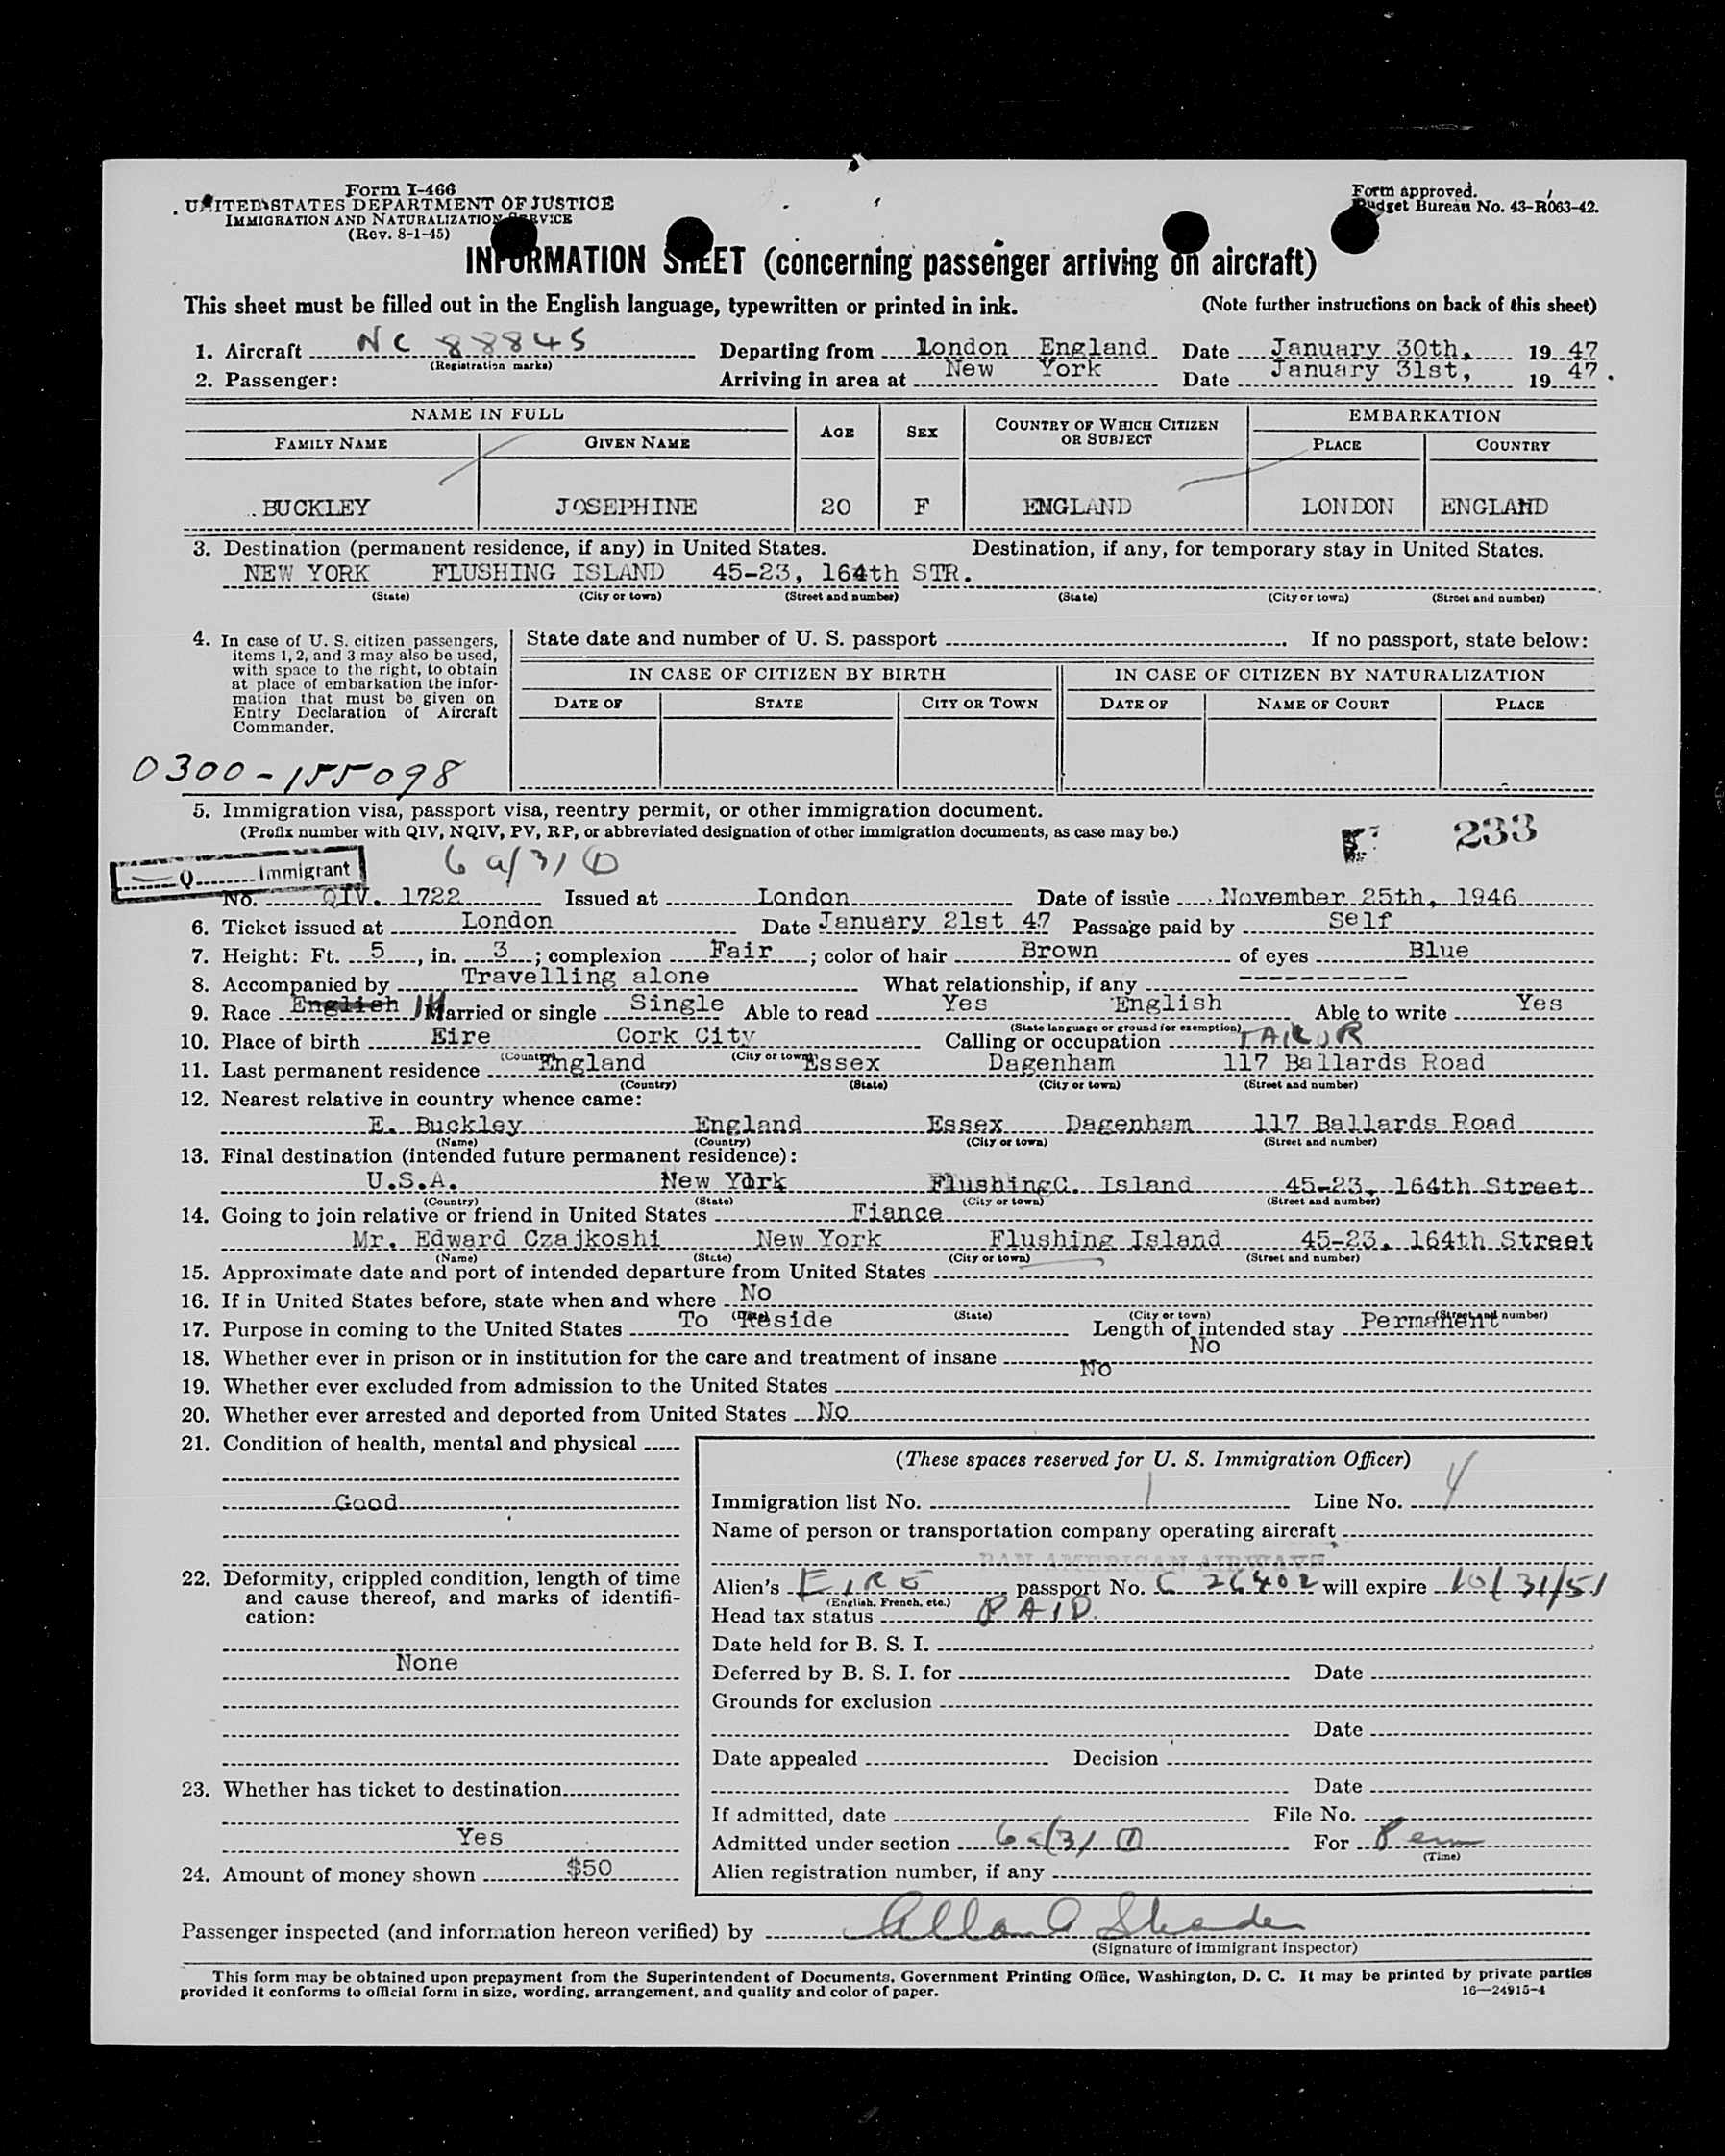 Form I-466
UNITED STATES DEPARTMENT OF JUSTICE
IMMIGRATION AND NATURALIZATION SERVICE
(Rev. 8-1-45)
Form approved.
Budget Bureau No. 43-R063-42.
INFORMATION SHEET (concerning passenger arriving on aircraft)
This sheet must be filled out in the English language, typewritten or printed in ink. (Note further instructions on back of this sheet)
1. Aircraft NC 88845 Departing from London England Date January 30th, 19 47
(Registration marks)
2. Passenger: Arriving in area at New York Date January 31st, 19 47.
NAME IN FULL AGE SEX COUNTRY OF WHICH CITIZEN OR SUBJECT EMBARKATION
FAMILY NAME GIVEN NAME PLACE COUNTRY
BUCKLEY JOSEPHINE 20 F ENGLAND LONDON ENGLAND
3. Destination (permanent residence, if any) in United States. Destination, if any, for temporary stay in United States.
NEW YORK FLUSHING ISLAND 45-23, 164th STR.
(State) (City or town) (Street and number) (State) (City or town) (Street and number)
4. In case of U. S. citizen passengers, items 1, 2, and 3 may also be used, with space to the right, to obtain at place of embarkation the information that must be given on Entry Declaration of Aircraft Commander.
State date and number of U. S. passport . If no passport, state below:
IN CASE OF CITIZEN BY BIRTH IN CASE OF CITIZEN BY NATURALIZATION
DATE OF STATE CITY OR TOWN DATE OF NAME OF COURT PLACE
0300-155098
5. Immigration visa, passport visa, reentry permit, or other immigration document.
(Prefix number with QIV, NQIV, PV, RP, or abbreviated designation of other immigration documents, as case may be.)
233
Q Immigrant
6 a/3/ (1)
No. QIV. 1722 Issued at London Date of issue November 25th, 1946
6. Ticket issued at London Date January 21st 47 Passage paid by Self
7. Height: Ft. 5, in. 3; complexion Fair; color of hair Brown of eyes Blue
8. Accompanied by Travelling alone What relationship, if any -----------
9. Race English IH Married or single Single Able to read Yes English Able to write Yes
(State language or ground for exemption)
10. Place of birth Eire Cork City Calling or occupation TAILOR
(Country) (City or town)
11. Last permanent residence England Essex Dagenham 117 Ballards Road
(Country) (State) (City or town) (Street and number)
12. Nearest relative in country whence came:
E. Buckley England Essex Dagenham 117 Ballards Road
(Name) (Country) (City or town) (Street and number)
13. Final destination (intended future permanent residence):
U.S.A. New York FlushingC. Island 45-23, 164th Street
(Country) (State) (City or town) (Street and number)
14. Going to join relative or friend in United States Fiance
Mr. Edward Czajkoshi New York Flushing Island 45-23, 164th Street
(Name) (State) (City or town) (Street and number)
15. Approximate date and port of intended departure from United States
16. If in United States before, state when and where No
(Date) (State) (City or town) (Street and number)
17. Purpose in coming to the United States To Reside Length of intended stay Permanent
18. Whether ever in prison or in institution for the care and treatment of insane No
19. Whether ever excluded from admission to the United States No
20. Whether ever arrested and deported from United States No
21. Condition of health, mental and physical
Good
22. Deformity, crippled condition, length of time and cause thereof, and marks of identification:
None
23. Whether has ticket to destination
Yes
24. Amount of money shown $50
(These spaces reserved for U. S. Immigration Officer)
Immigration list No. 1 Line No. 4
Name of person or transportation company operating aircraft
PAN AMERICAN AIRWAYS
Alien's EIRE passport No. C 26402 will expire 10/31/51
(English, French, etc.)
Head tax status PAID
Date held for B. S. I.
Deferred by B. S. I. for Date
Grounds for exclusion
Date
Date appealed Decision
Date
If admitted, date File No.
Admitted under section 6a/3/ (1) For Perm
(Time)
Alien registration number, if any
Passenger inspected (and information hereon verified) by
(Signature of immigrant inspector)
This form may be obtained upon prepayment from the Superintendent of Documents, Government Printing Office, Washington, D. C. It may be printed by private parties
provided it conforms to official form in size, wording, arrangement, and quality and color of paper. 16—24915-4